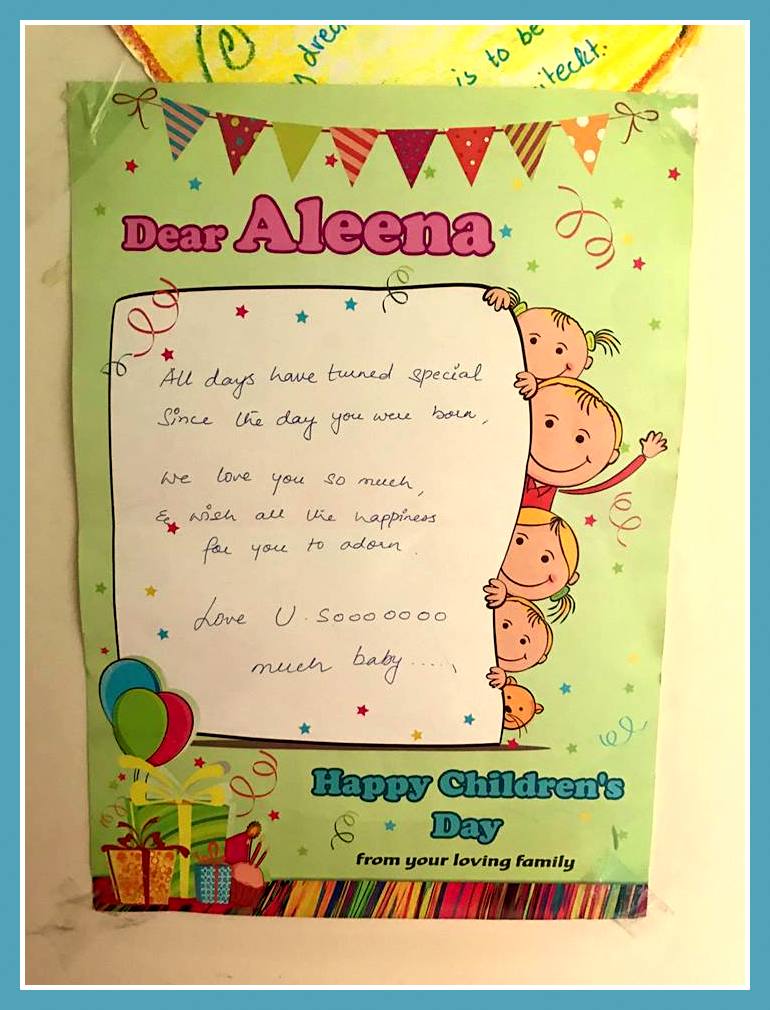 dre
is to be
iteckt.
Dear Aleena
All days have turned special
Since the day you were born,
We love you so much,
& wish all the happiness
for you to adorn.
Love U. Soooooooo
much baby.....,
Happy Children's
Day
from your loving family